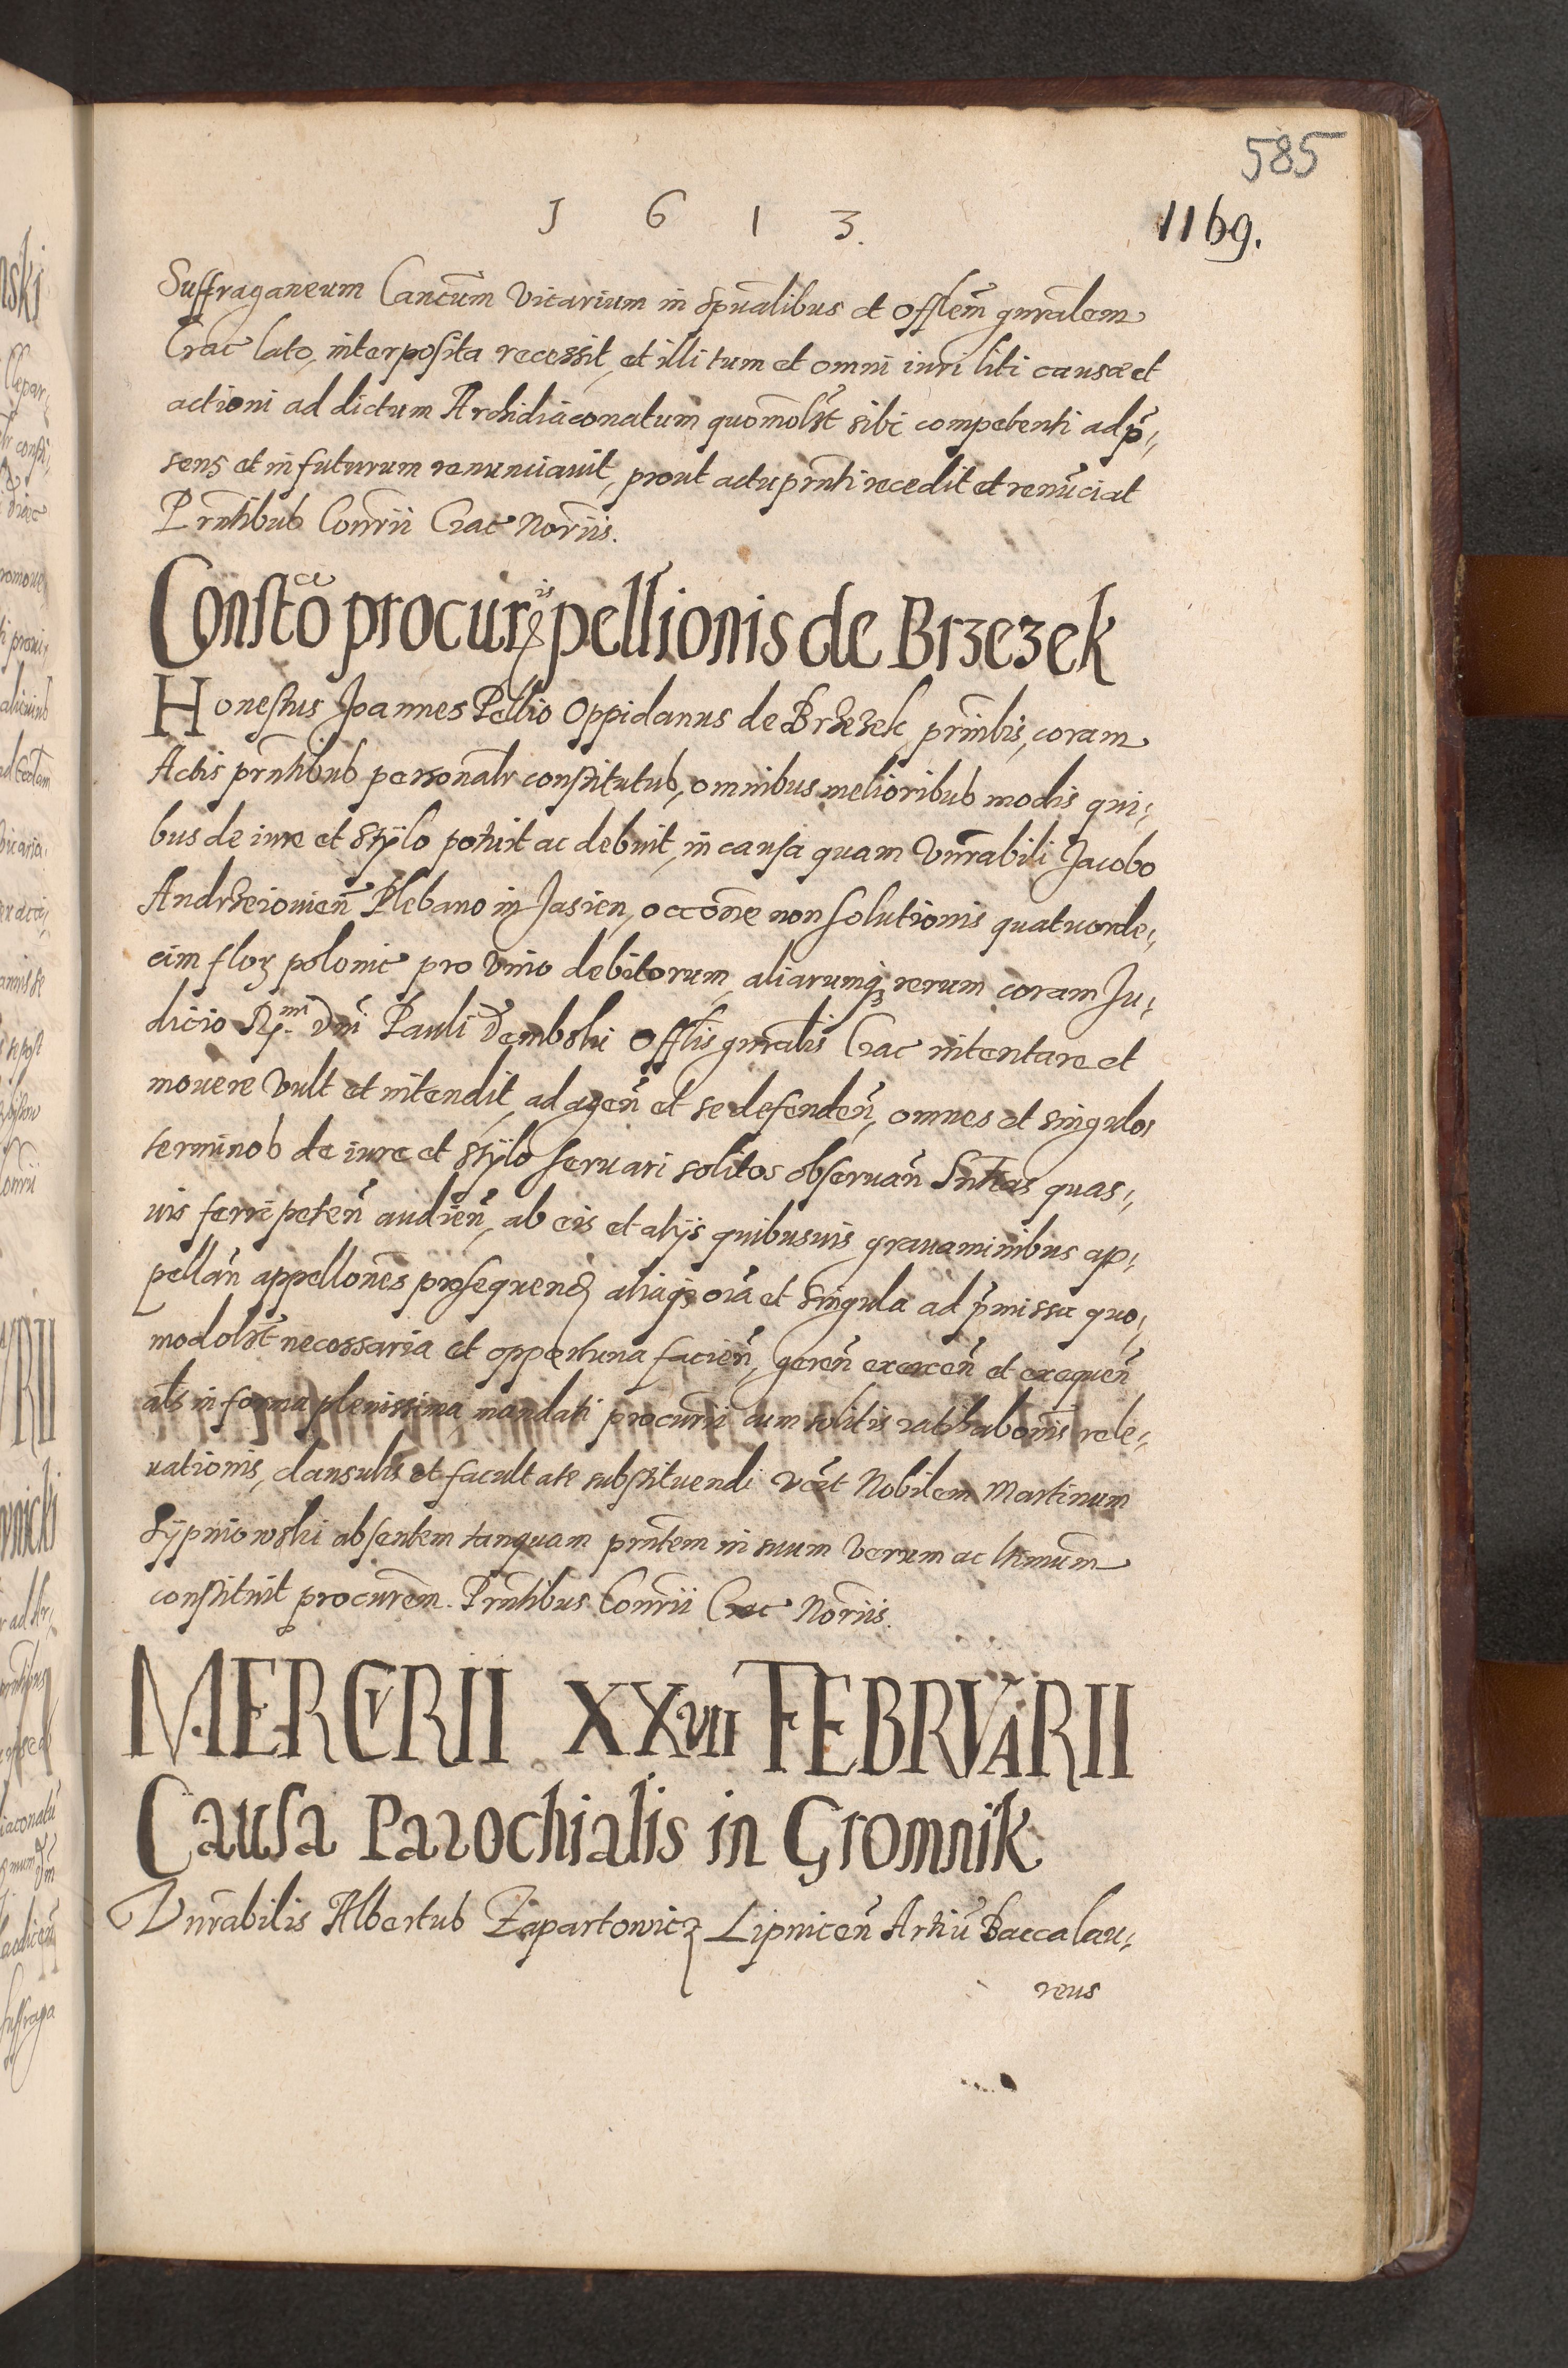 585
1 6 1 3.
1169.
Suffraganeum Cancũm Vicarium in spũalibus et Offlem̃ gnralem
Crac lato, interposita recessit, et illi tum et omni iuri liti causæ et
actioni ad dictum Archidiaconatum quomolt̃ sibi competenti ad p̃,
sens et in futurum renunciauit, prout actu prñti recedit et renũciat
Prñtibus Conrii Crac Noriis.
Constcõ procuris pellionis de Brzezek
Honestus Joannes Pellio Oppidanus de Brzezek, prinlis, coram
Actis prñtibus personalr constitutus, omnibus melioribus modis qui,
bus de iure et stylo potuit ac debuit, in causa quam Vnrabili Jacobo
Andrzeiouien̄ Plebano in Jasien, occõne non solutionis quatuorde,
cim floz polonic pro Vino debitorum, aliarumq; rerum coram Ju,
dicio R.mi Dni Pauli Dembski Offlis gnralis Crac intentare et
mouere Vult et intendit, ad agen̄ et se defenden̄, omnes et singulos
terminos de iure et stylo seruari solitos obseruan̄ Sntias quas,
uis ferri peten̄ audien̄, ab eis et alijs quibusuis grauaminibus ap,
pellan̄ appellones prosequend aliaq; oĩa et singula ad p̃missa quo,
modolt̃ necessaria et opportuna facien̄, geren̄ exercen̄ et exequen̄
als in forma plenissima mandati procurii cum solitis ratihabonis rele,
uationis, clausulis et facultate substituendi vc̃t Nobilem Martinum
Sypniowski absentem tanquam prñtem in suum Verum ac ltimum
constituit procurem. Prñtibus Conrii Crac Noriis.
MERCVRII XXVII FEBRVARII
Causa Parochialis in Gromnik
Vnrabilis Albertus Zapartowicz Lipnicen̄ Artiũ Baccalau,
reus